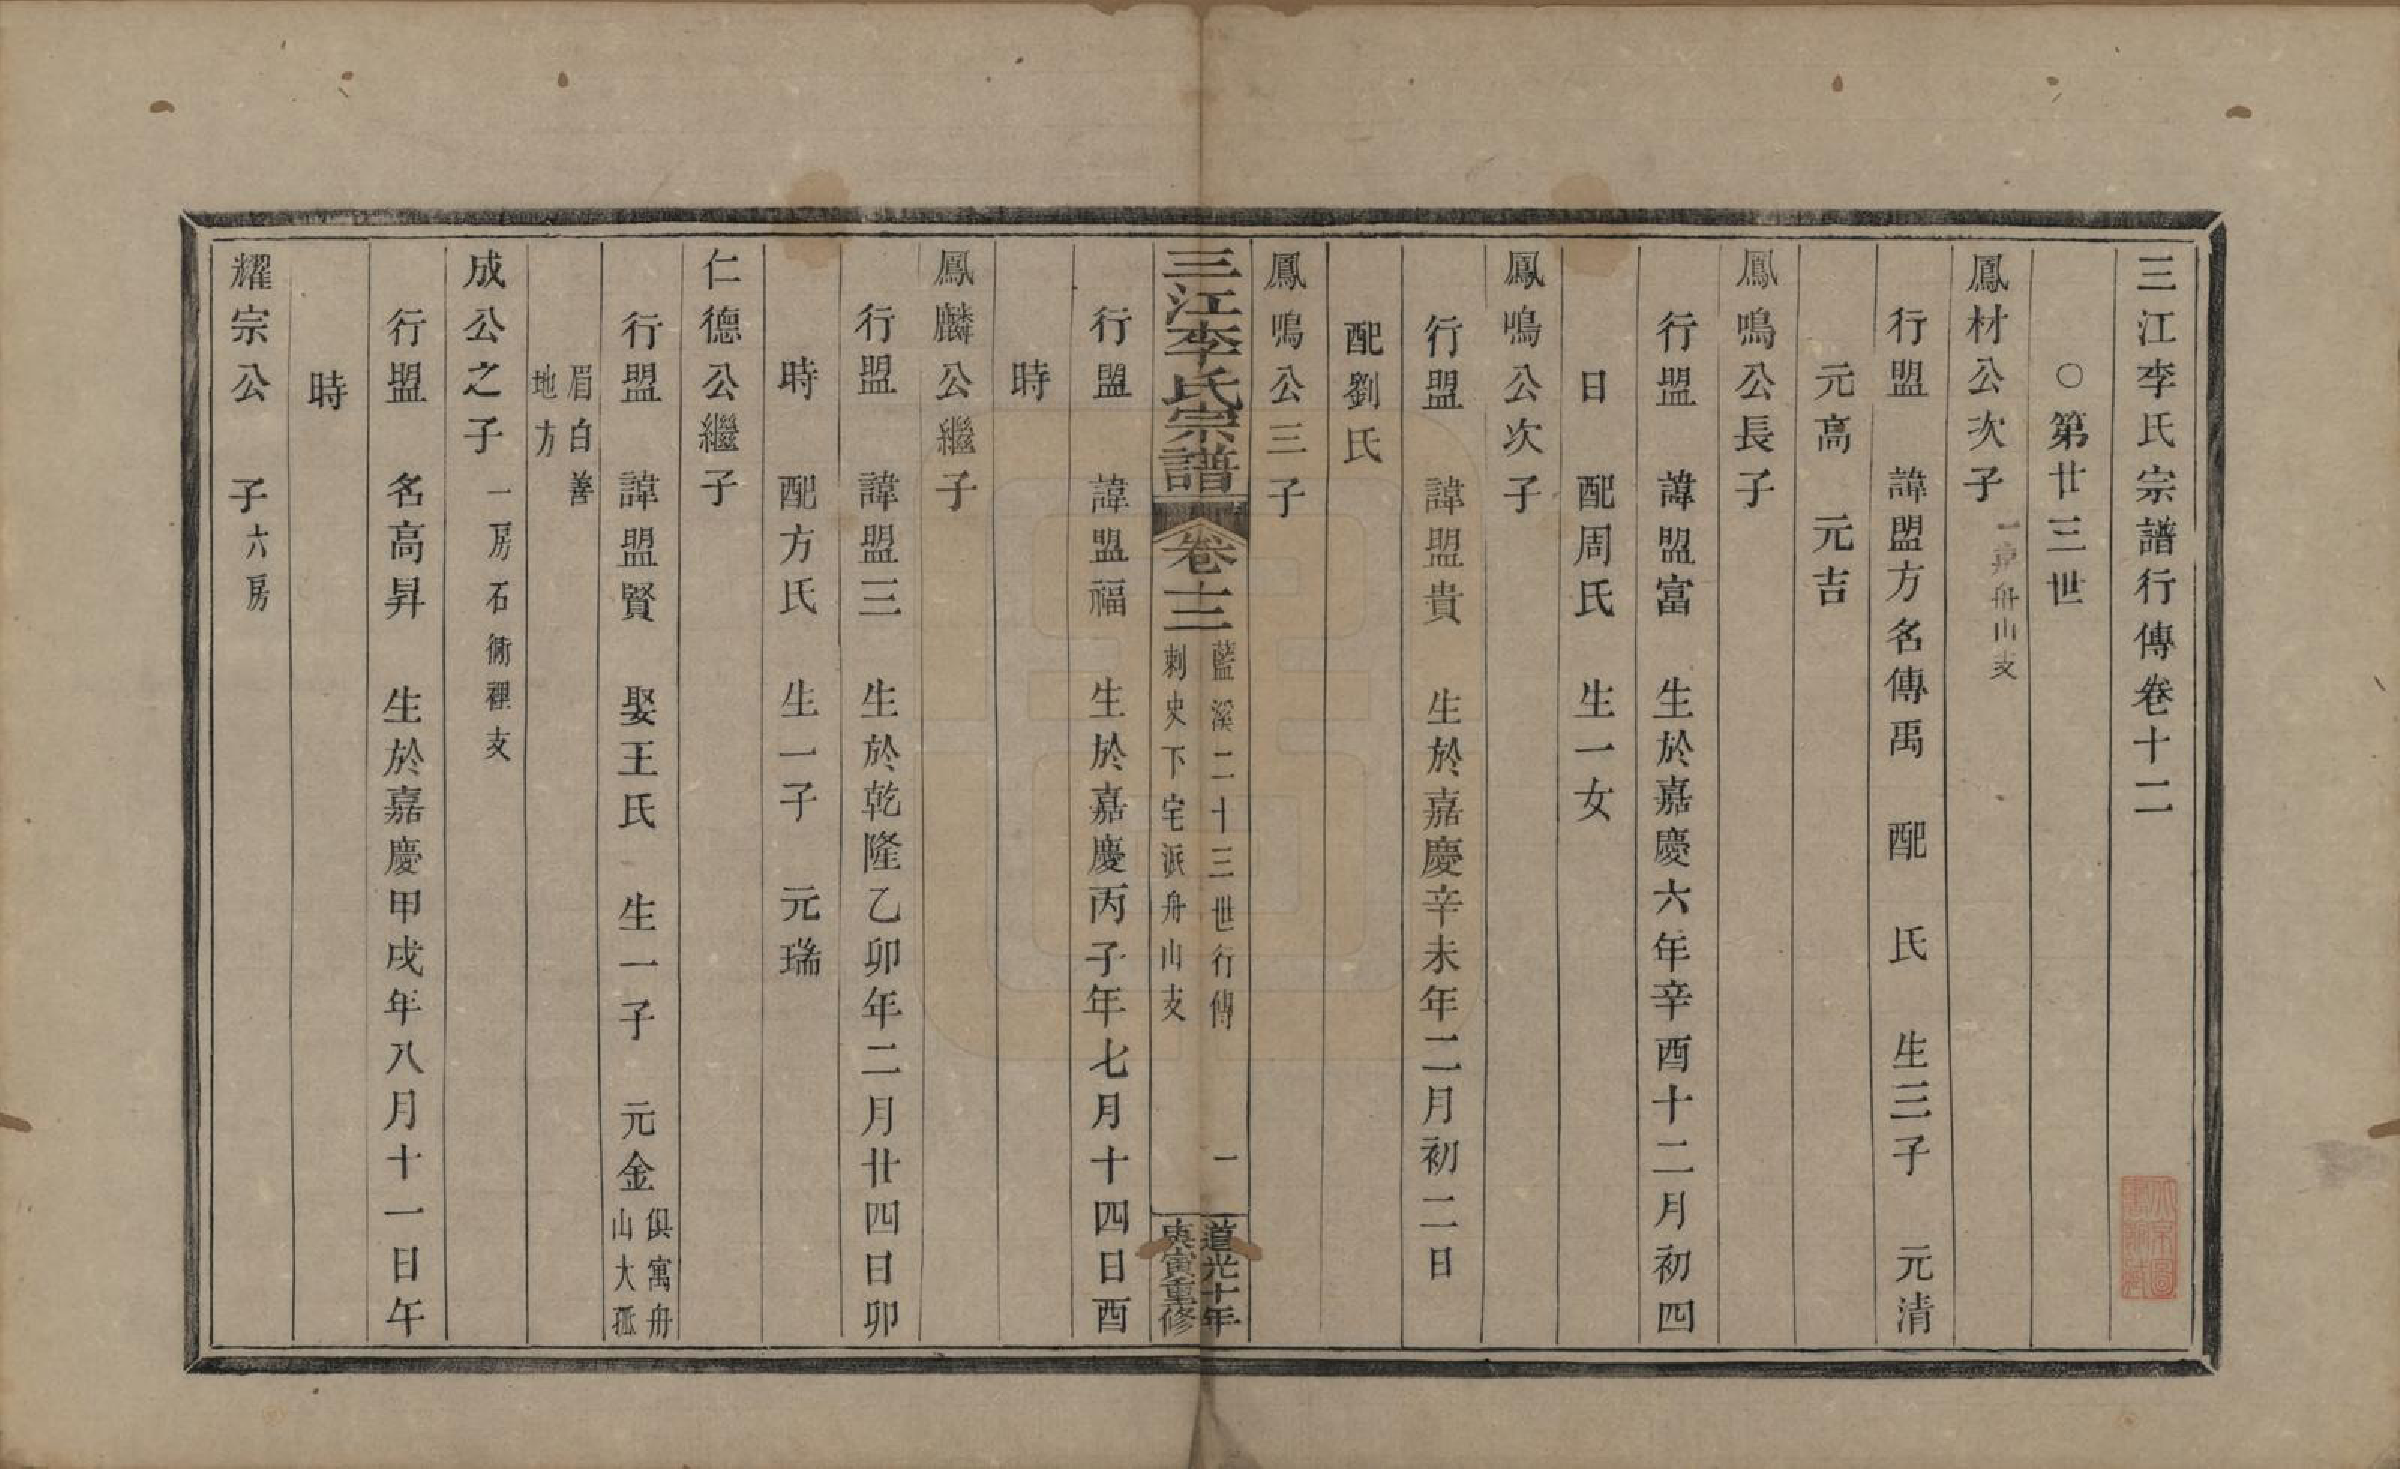 三江李氏宗譜行傳卷十二
○第廿三世
鳳材公次子 一章舟山支
行盟 諱盟方名傳禹 配 氏 生三子 元清
元高 元吉
鳳鳴公長子
行盟 諱盟富 生於嘉慶六年辛酉十二月初四
日 配周氏 生一女
鳳鳴公次子
行盟 諱盟貴 生於嘉慶辛未年二月初二日
配劉氏
鳳鳴公三子
三江李氏宗譜 卷十二 藍溪二十三世行傳 一
刺史下宅派舟山支
道光十年
庚寅重修
行盟 諱盟福 生於嘉慶丙子年七月十四日酉
時
鳳麟公繼子
行盟 諱盟三 生於乾隆乙卯年二月廿四日卯
時 配方氏 生一子 元瑞
仁德公繼子
行盟 諱盟賢 娶王氏 生一子 元金 俱寓舟
山大孤
眉白善
地方
成公之子 一房石衕裡支
行盟 名高昇 生於嘉慶甲戌年八月十一日午
時
耀宗公 子 六房